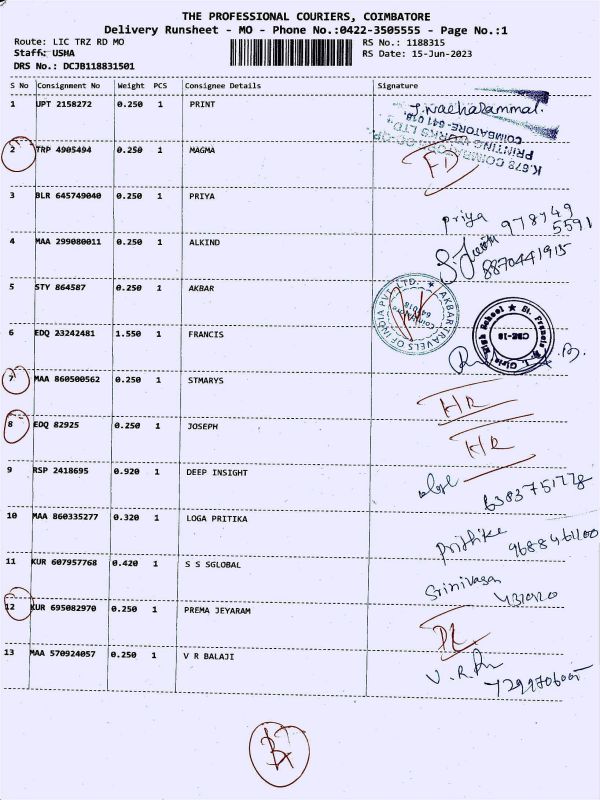 THE PROFESSIONAL COURIERS, COIMBATORE
Delivery Runsheet - MO - Phone No.:0422-3505555 - Page No.:1
Route: LIC TRZ RD MO RS No.: 1188315
Staff: USHA RS Date: 15-Jun-2023
DRS No.: DCJB118831501
S No Consignment No Weight PCS Consignee Details Signature
1 UPT 2158272 0.250 1 PRINT
K.678 COIMBATORE CO-OP.
PRINTING WORKS LTD.,
COIMBATORE- 641 018.
2 TRP 4905494 0.250 1 MAGMA FD
3 BLR 645749040 0.250 1 PRIYA priya
4 MAA 299080011 0.250 1 ALKIND 8870441915
5 STY 864587 0.250 1 AKBAR
AKBAR TRAVELS OF INDIA PVT. LTD.
6 EDQ 23242481 1.550 1 FRANCIS
St. Francis Girls High School
CBE-18
7 MAA 860500562 0.250 1 STMARYS HR
8 EDQ 82925 0.250 1 JOSEPH HR
9 RSP 2418695 0.920 1 DEEP INSIGHT
10 MAA 860335277 0.320 1 LOGA PRITIKA Prithika
11 KUR 607957768 0.420 1 S S SGLOBAL Srinivasan
12 KUR 695082970 0.250 1 PREMA JEYARAM DL
13 MAA 570924057 0.250 1 V R BALAJI